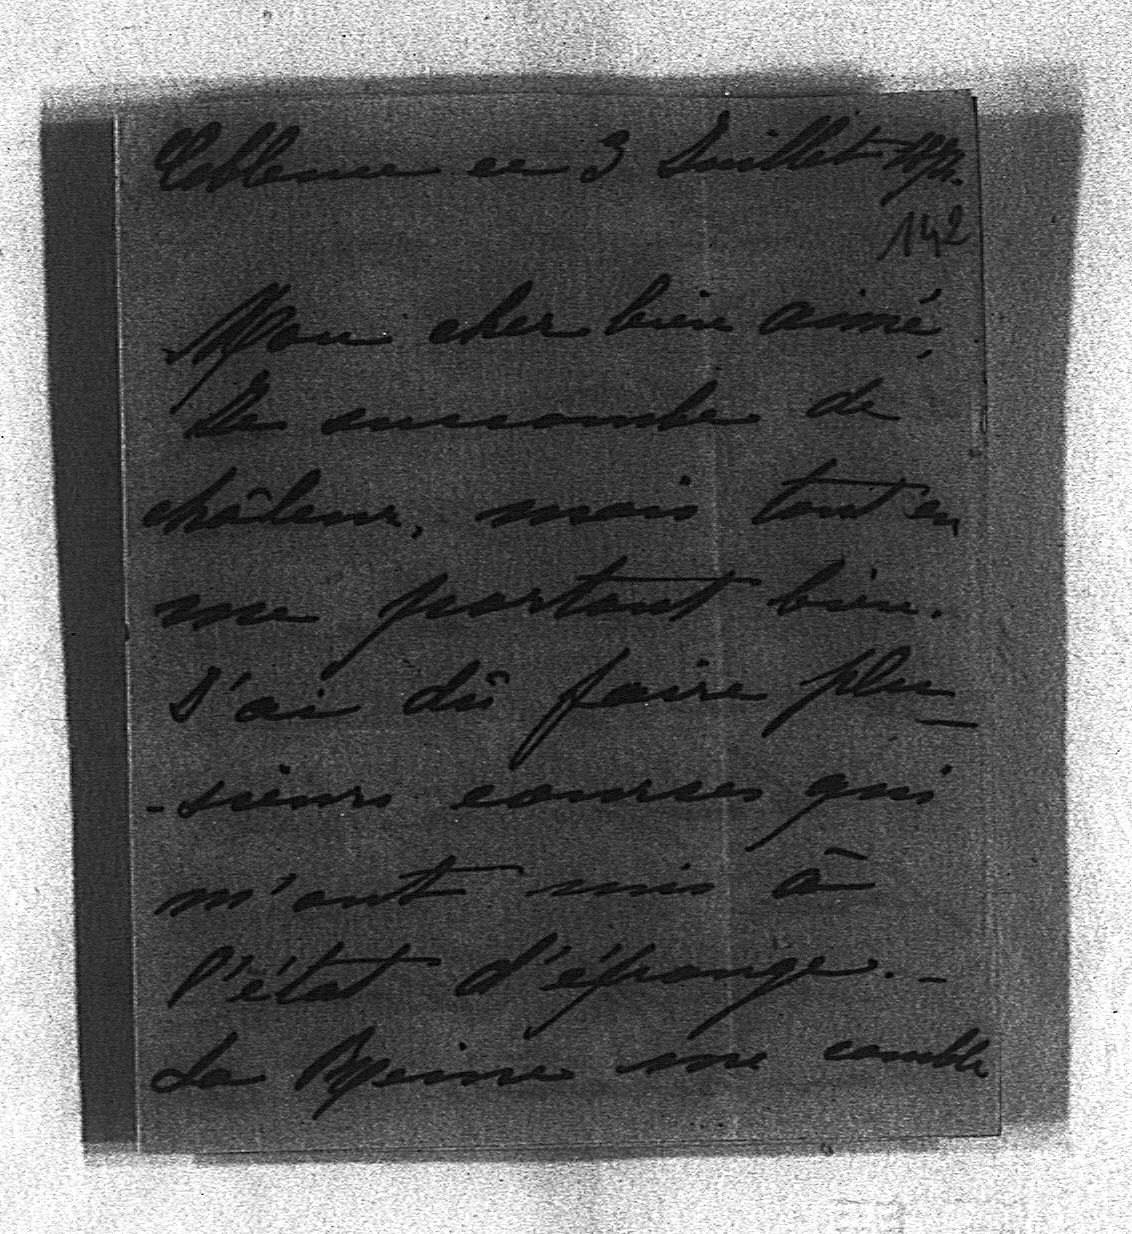 Coblence ce 3 Juillet
142
Mon cher bien aimé,
Je succombe de
châleur, mais tout en
me portant bien.
J'ai dû faire plu_
-sieurs courses qui
m'ont mis à
l'état d'éponge._
La Reine me comble